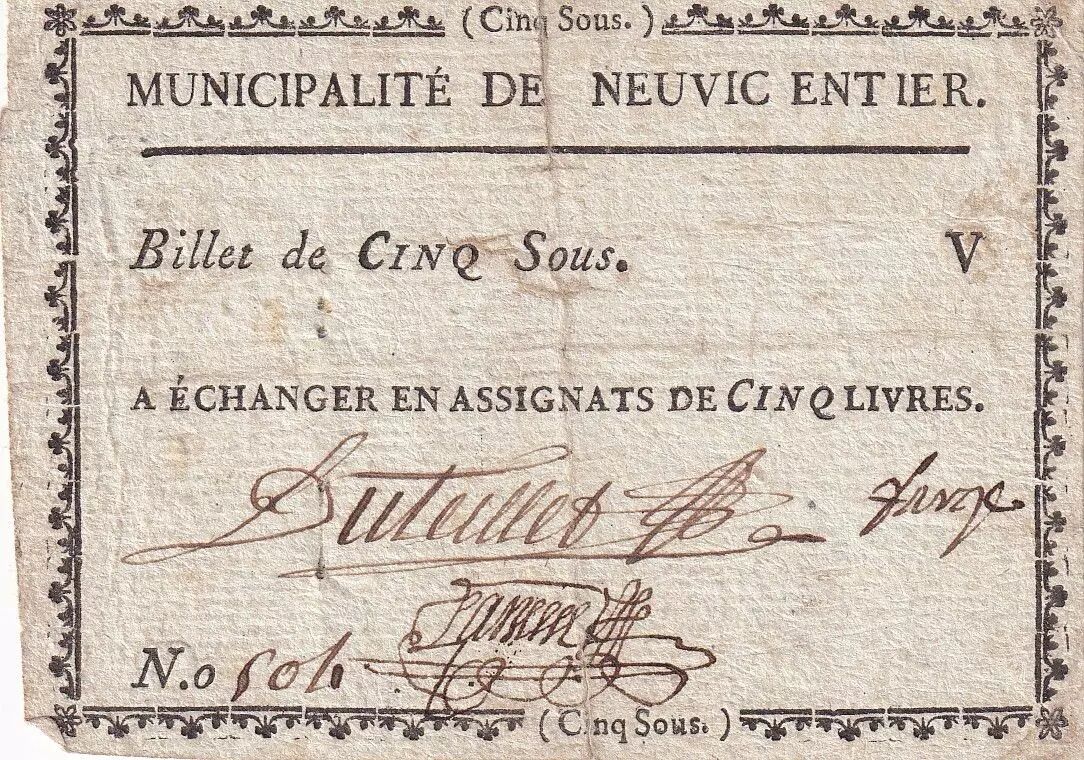 (Cinq Sous.)
MUNICIPALITÉ DE NEUVIC ENTIER.
Billet de CINQ Sous. V
A ÉCHANGER EN ASSIGNATS DE CINQ LIVRES.
Duteillet
N.o
(Cinq Sous.)